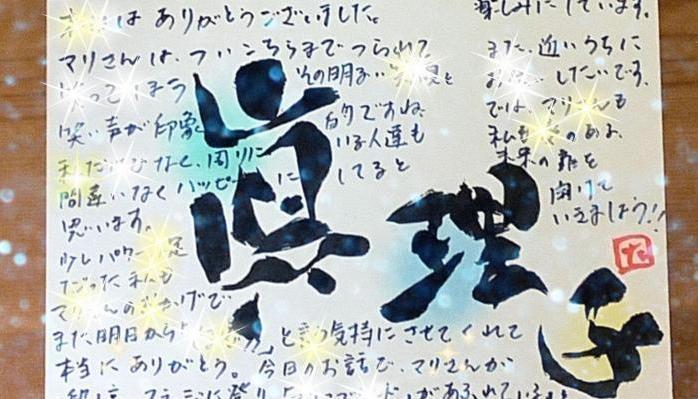 眞理子
は ありがとうございました。
マリさんは、ついこちらまでつられて
その明るい
笑い声が印象的ですね。
なく、周りにいる人達も
間違いなくハッピーにしてると
思います。
少しパワー
だった私も
マリさんのおかげで
また明日から と言う気持にさせてくれて
本当にありがとう。今日のお話で、マリさんが
楽しみにしています。
また、近いうちに
したいです。
では、マリさんも
私も
未来の扉を
開けて
いきましょう!!
た